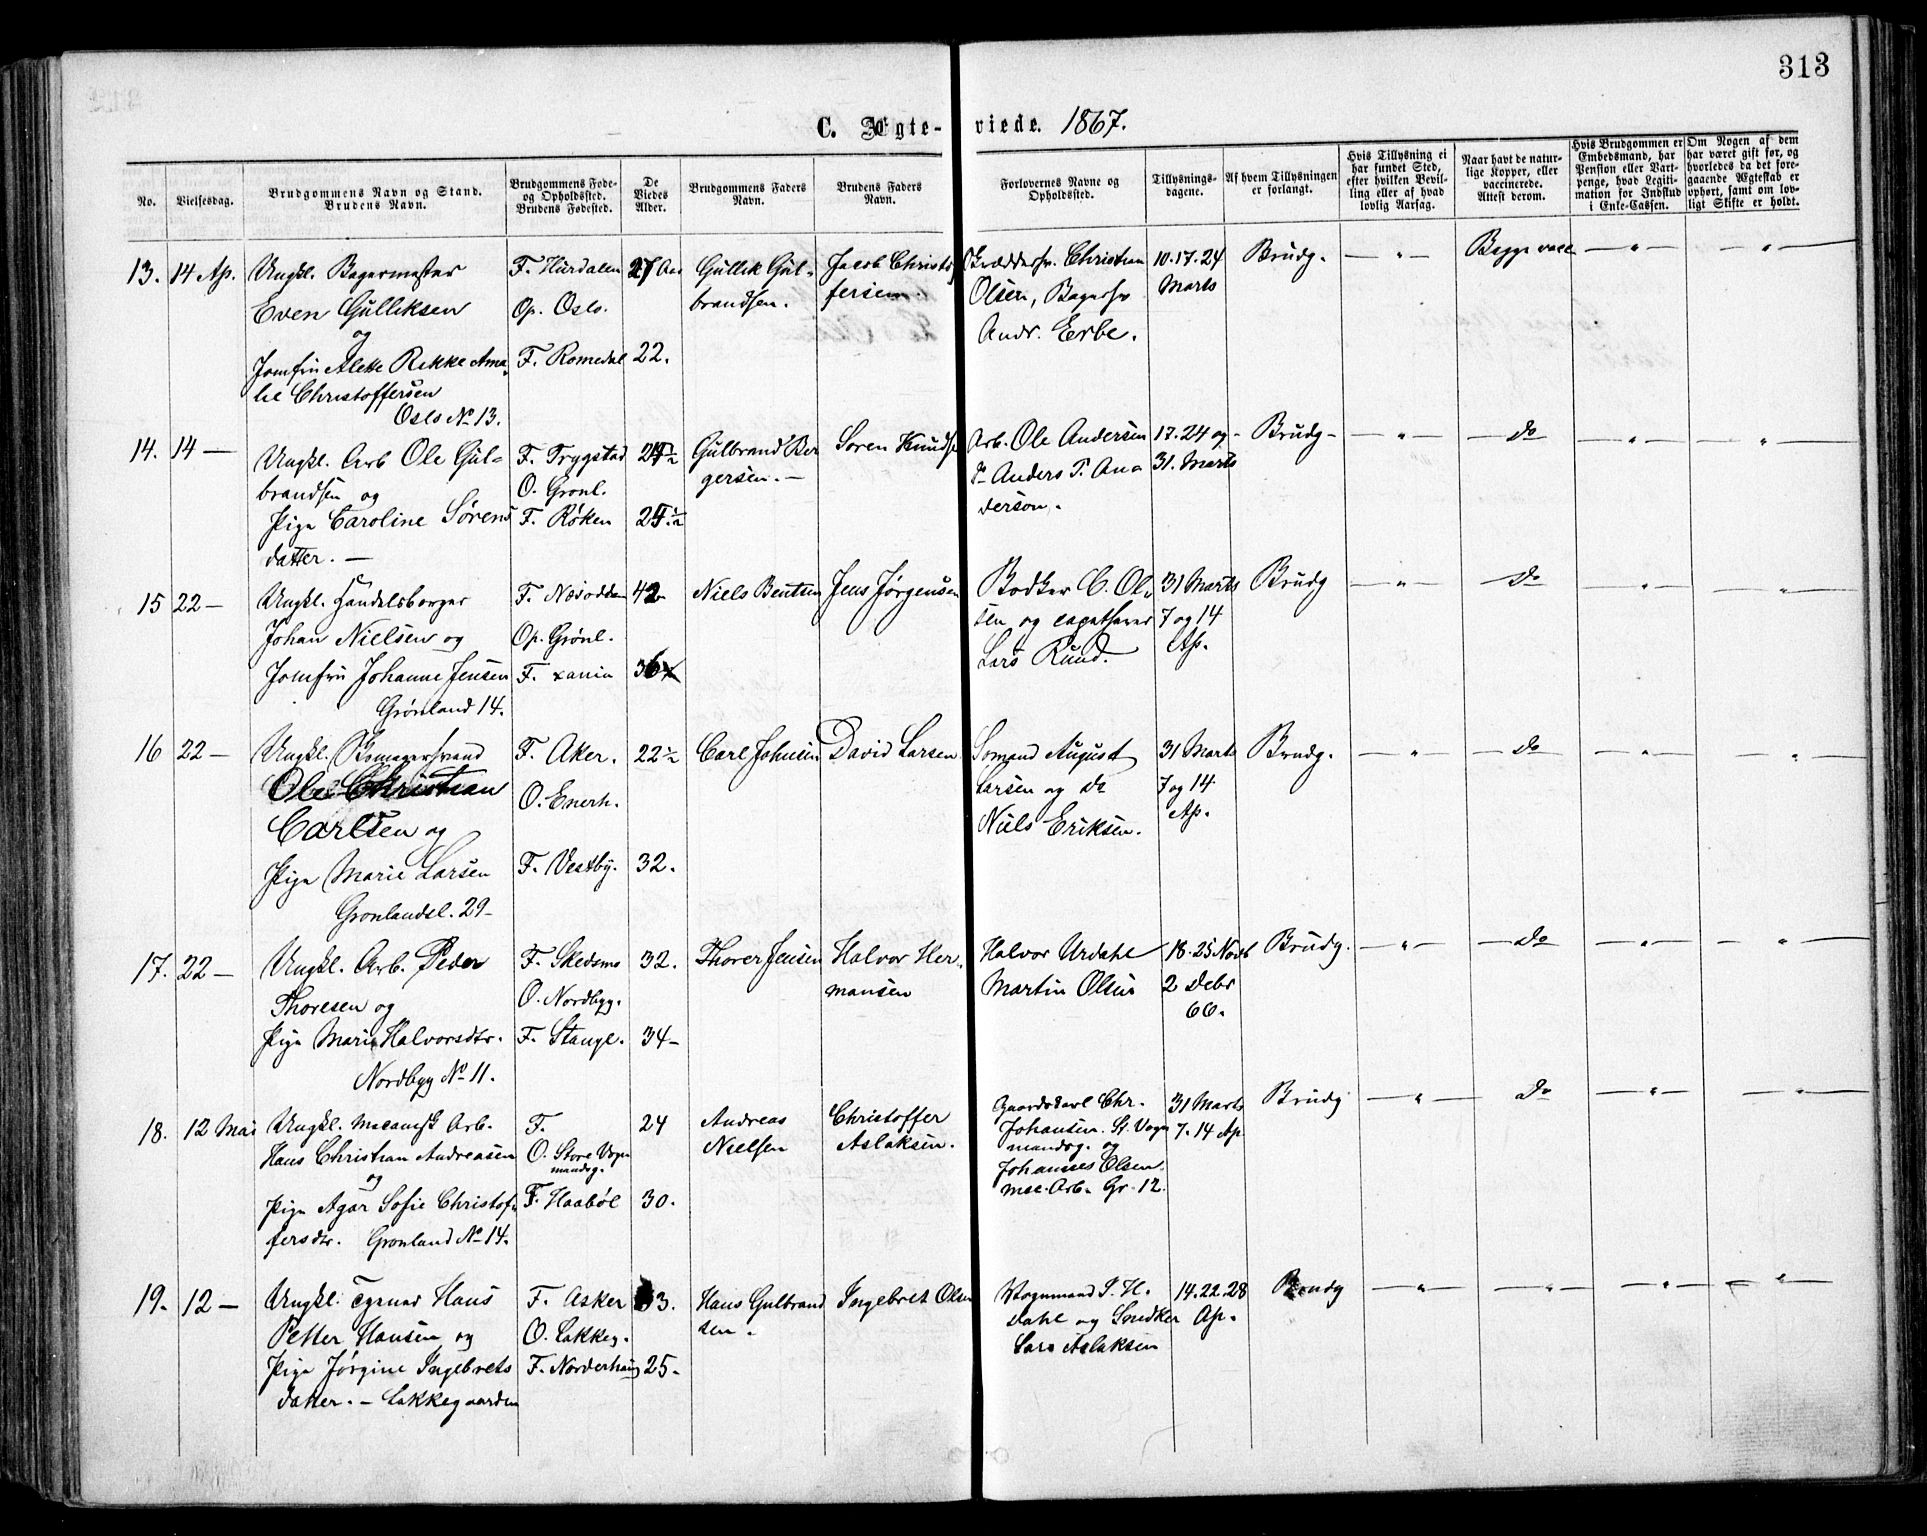 313
C. Ægte-viede. 1867.
No.
Vielsesdag.
Brudgommens Navn og Stand.
Brudens Navn.
Brudgommens Føde-
og Opholdssted.
Brudens Fødested.
De
Viedes
Alder.
Brudgommens Faders
Navn.
Brudens Faders
Navn.
Forlovernes Navne og
Opholdssted.
Tillysnings-
dagene.
Af hvem Tillysningen
er forlangt.
Hvis Tillysning ei
har fundet Sted,
efter hvilken Bevil-
ling eller af hvad
lovlig Aarsag.
Naar havt de natur-
lige Kopper, eller
vaccinerede.
Attest derom.
Hvis Brudgommen er
Embedsmand, har
Pension eller Vart-
penge, hvad Legiti-
mation for Indskud
i Enke-Cassen.
Om Nogen af dem
har været gift før, og
hvorledes da det fore-
gaaende Ægteskab er
ophørt, samt om lov-
ligt Skifte er holdt.
13. 14 Ap. Ungkl. Bagermester F. Hurdalen 27 Aar Gullik Gul- Jacob Christof Christian 10. 17. 24 Brudg. — " — Begge vacc — " — — " —
Even Gulliksen Op. Oslo. brandsen. fersen. Olsen, Bagersv Marts
og Andr. Eerbe.
Jomfru Alette Rikke Ama- F. Romedal 22.
lie Christoffersen
Oslo No 13.
14. 14 — Ungkl. Arb Ole Gul- F. Trygstad Gulbrand Ber Soren Knuds Arb. Ole Andersen 17. 24 og - Brudg - — " — do — " — "
brandsen og O. Gronl. gersen. — Anders P. An- 31. Marts
Pige Caroline Sørens F. Røken derson.
datter. —
15 22 — Ungkl. Handelsborger F. Næsodden 42 Niels Bentsen Jens Jørgensen Bødker C. Ol- 31 Marts Brudg — " — do — " — "
Johan Nielsen og Op. Grönl. sen og 7 og 14
Jomfru Johanne Jensen F. xania 36 Lars Rund. Ap.
Grönland 14.
16 22 — Ungkl. F. Aker. 22½ Carl Johnsen David Larsen Somand August 31 Marts Brudg. — " — do — " — "
Ole Christian O. Enerh. Larsen og do 7 og 14
Carlsen og Niels Eriksen. Ap.
Pige Marie Larsen F. Vestby. 32.
Gronlandsl. 29 -
17. 22 — Ungkl. Arb. Peder F. Skedsmo 32. Thorer Jensen Halvor Her- Halvor Urdahl 18. 25 Novb Brudg. — " — do — " — "
Thoresen og O. Nordbyg. mansen Martin Olsen 2 Debr
Pige Marie Halvorsdtr. F. Stange. 34 - 66.
Nordbyg No 11.
18. 12 Mai Ungkl. mecanisk Arb. F. 24 Andreas Christoffer Gaardskarl Chr. 31 Marts Brudg — " — do — " — "
Hans Christian Andreasen O. Store Vogn Nielsen Aslaksen. Johansen. St. Vogn 7. 14 Ap
og mandsg. mandsg. og
Pige Agar Sofie Christof- F. Haabøl 30. Johannes Olsen.
fersdtr. Gronland No 14. mec. Arb. Gr. 12.
19. 12 — Ungkl. Hans F. Asker 33. Hans Gulbrand Ingebret Olsen Vognmand P. H. 14. 22. 28 Brudg — " — — " — — " — — " —
Petter Hansen og O. Lakkeg. sen. dahl og Snedker Ap.
Pige Jørgine Ingebrets F. Norderhaug 25 - Lars Aslaksen
datter. — Lakkegaarden